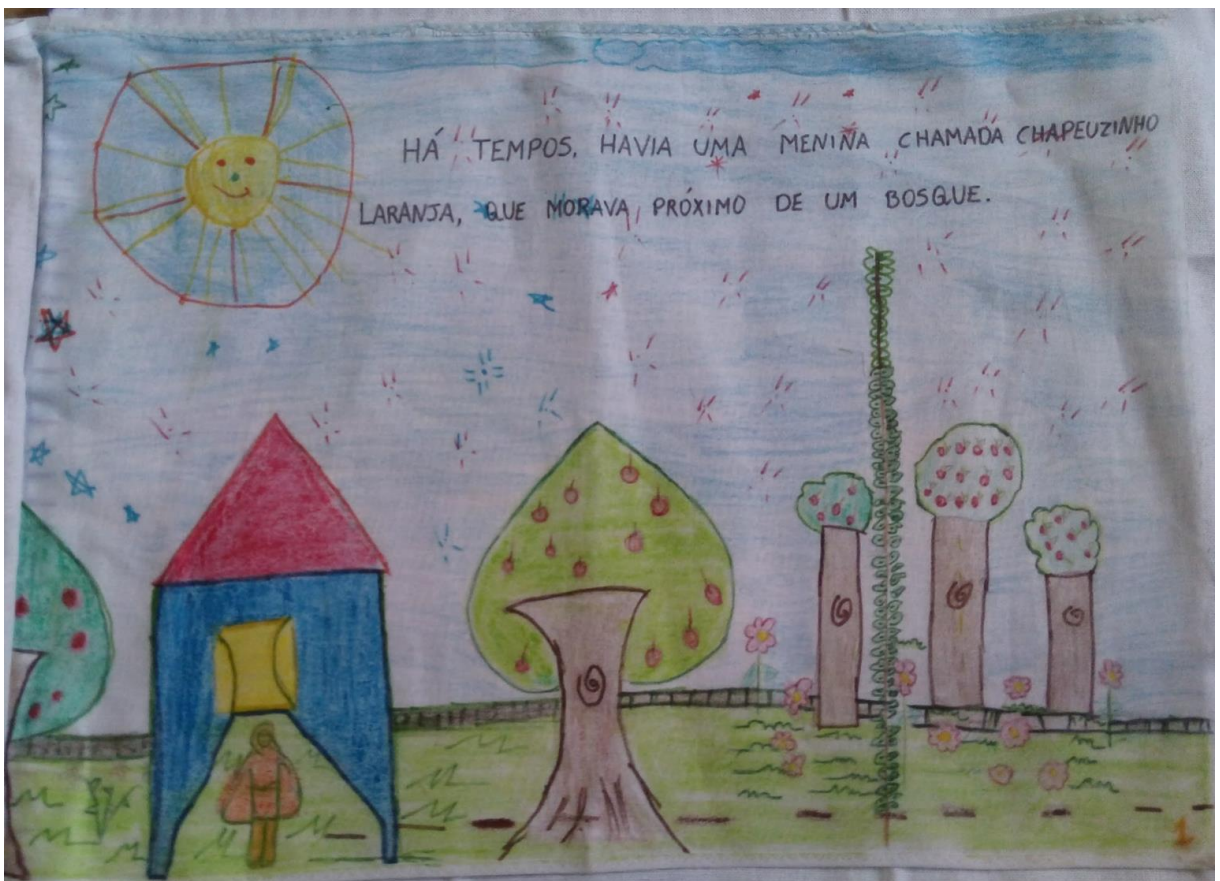 HÁ TEMPOS, HAVIA UMA MENINA CHAMADA CHAPEUZINHO
LARANJA, QUE MORAVA PRÓXIMO DE UM BOSQUE.
1